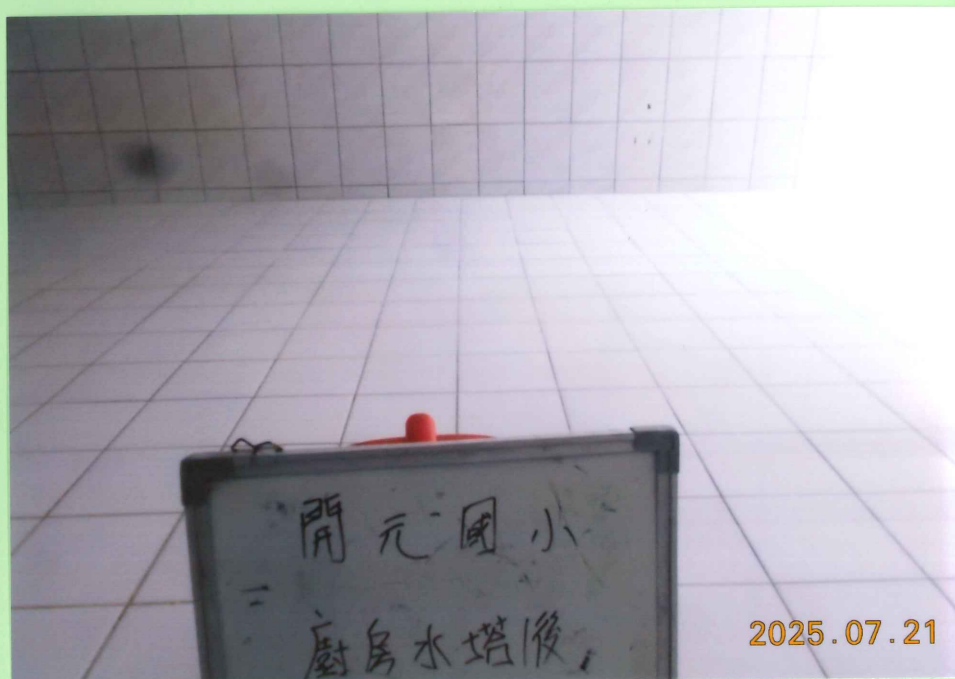 開元國小
二
廚房水塔後
2025.07.21